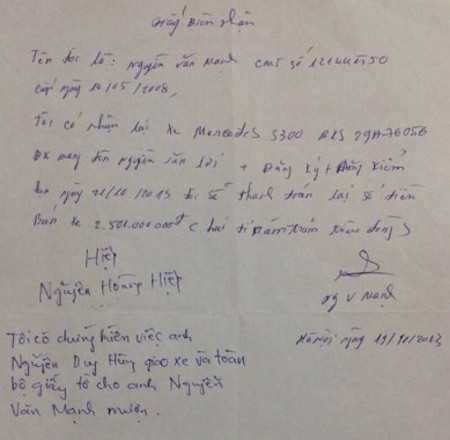 Giấy Biên nhận
Tên tôi là: Nguyễn Văn Mạnh CMT số 121441550
cấp ngày 10/05/2008,
Tôi có nhận lại xe Mercedes S300 BKS 29A-76056
ĐK mang tên Nguyễn Văn Lợi + Đăng ký + Đăng kiểm
ngày 21/10/2013 tôi sẽ thanh toán lại số tiền
Bán xe 2.501.000.000đ (hai tỉ năm trăm triệu đồng)
Hiệp
Nguyễn Hồng Hiệp
Ng V Mạnh
Hà Nội ngày 19/10/2013
Tôi có chứng kiến việc anh
Nguyễn Duy Hùng giao xe và toàn
bộ giấy tờ cho anh Nguyễn
Văn Mạnh mượn.